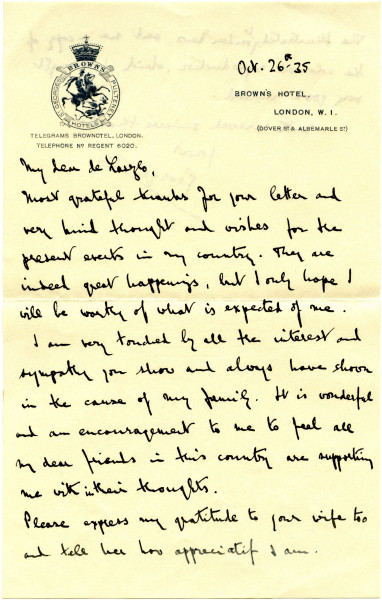 BROWN'S
HOTELS
Oct. 26th 35
BROWN'S HOTEL,
LONDON, W.1.
(DOVER ST & ALBEMARLE ST)
TELEGRAMS BROWNOTEL, LONDON.
TELEPHONE No REGENT 6020.
My dear de Laszlo,
Most grateful thanks for your letter and
very kind thought and wishes for the
present events in my country. They are
indeed great happenings, but I only hope I
will be worthy of what is expected of me.
I am very touched by all the interest and
sympathy you show and always have shown
in the cause of my family. It is wonderful
and an encouragement to me to feel all
my dear friends in this country are supporting
me with their thoughts.
Please express my gratitude to your wife too
and tell her how appreciatif I am.